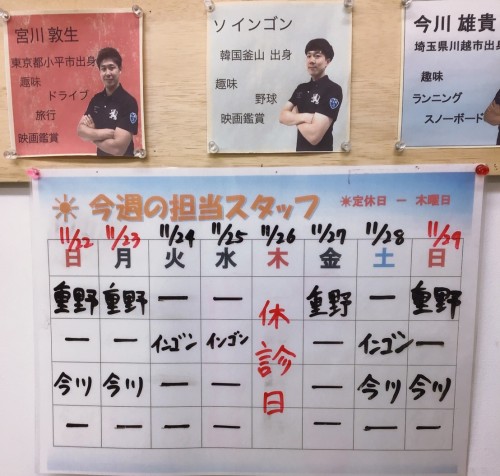 宮川 敦生
東京都小平市出身
趣味
ドライブ
旅行
映画鑑賞
ソ インゴン
韓国釜山 出身
趣味
野球
映画鑑賞
今川 雄貴
埼玉県川越市出身
趣味
ランニング
スノーボード
☀今週の担当スタッフ ☀定休日 ー 木曜日
11/22 11/23 11/24 11/25 11/26 11/27 11/28 11/29
日 月 火 水 木 金 土 日
重野 重野 ー ー 重野 ー 重野
ー ー インゴン インゴン ー インゴン ー
今川 今川 ー ー ー 今川 今川
ー ー ー ー ー ー ー
休診日